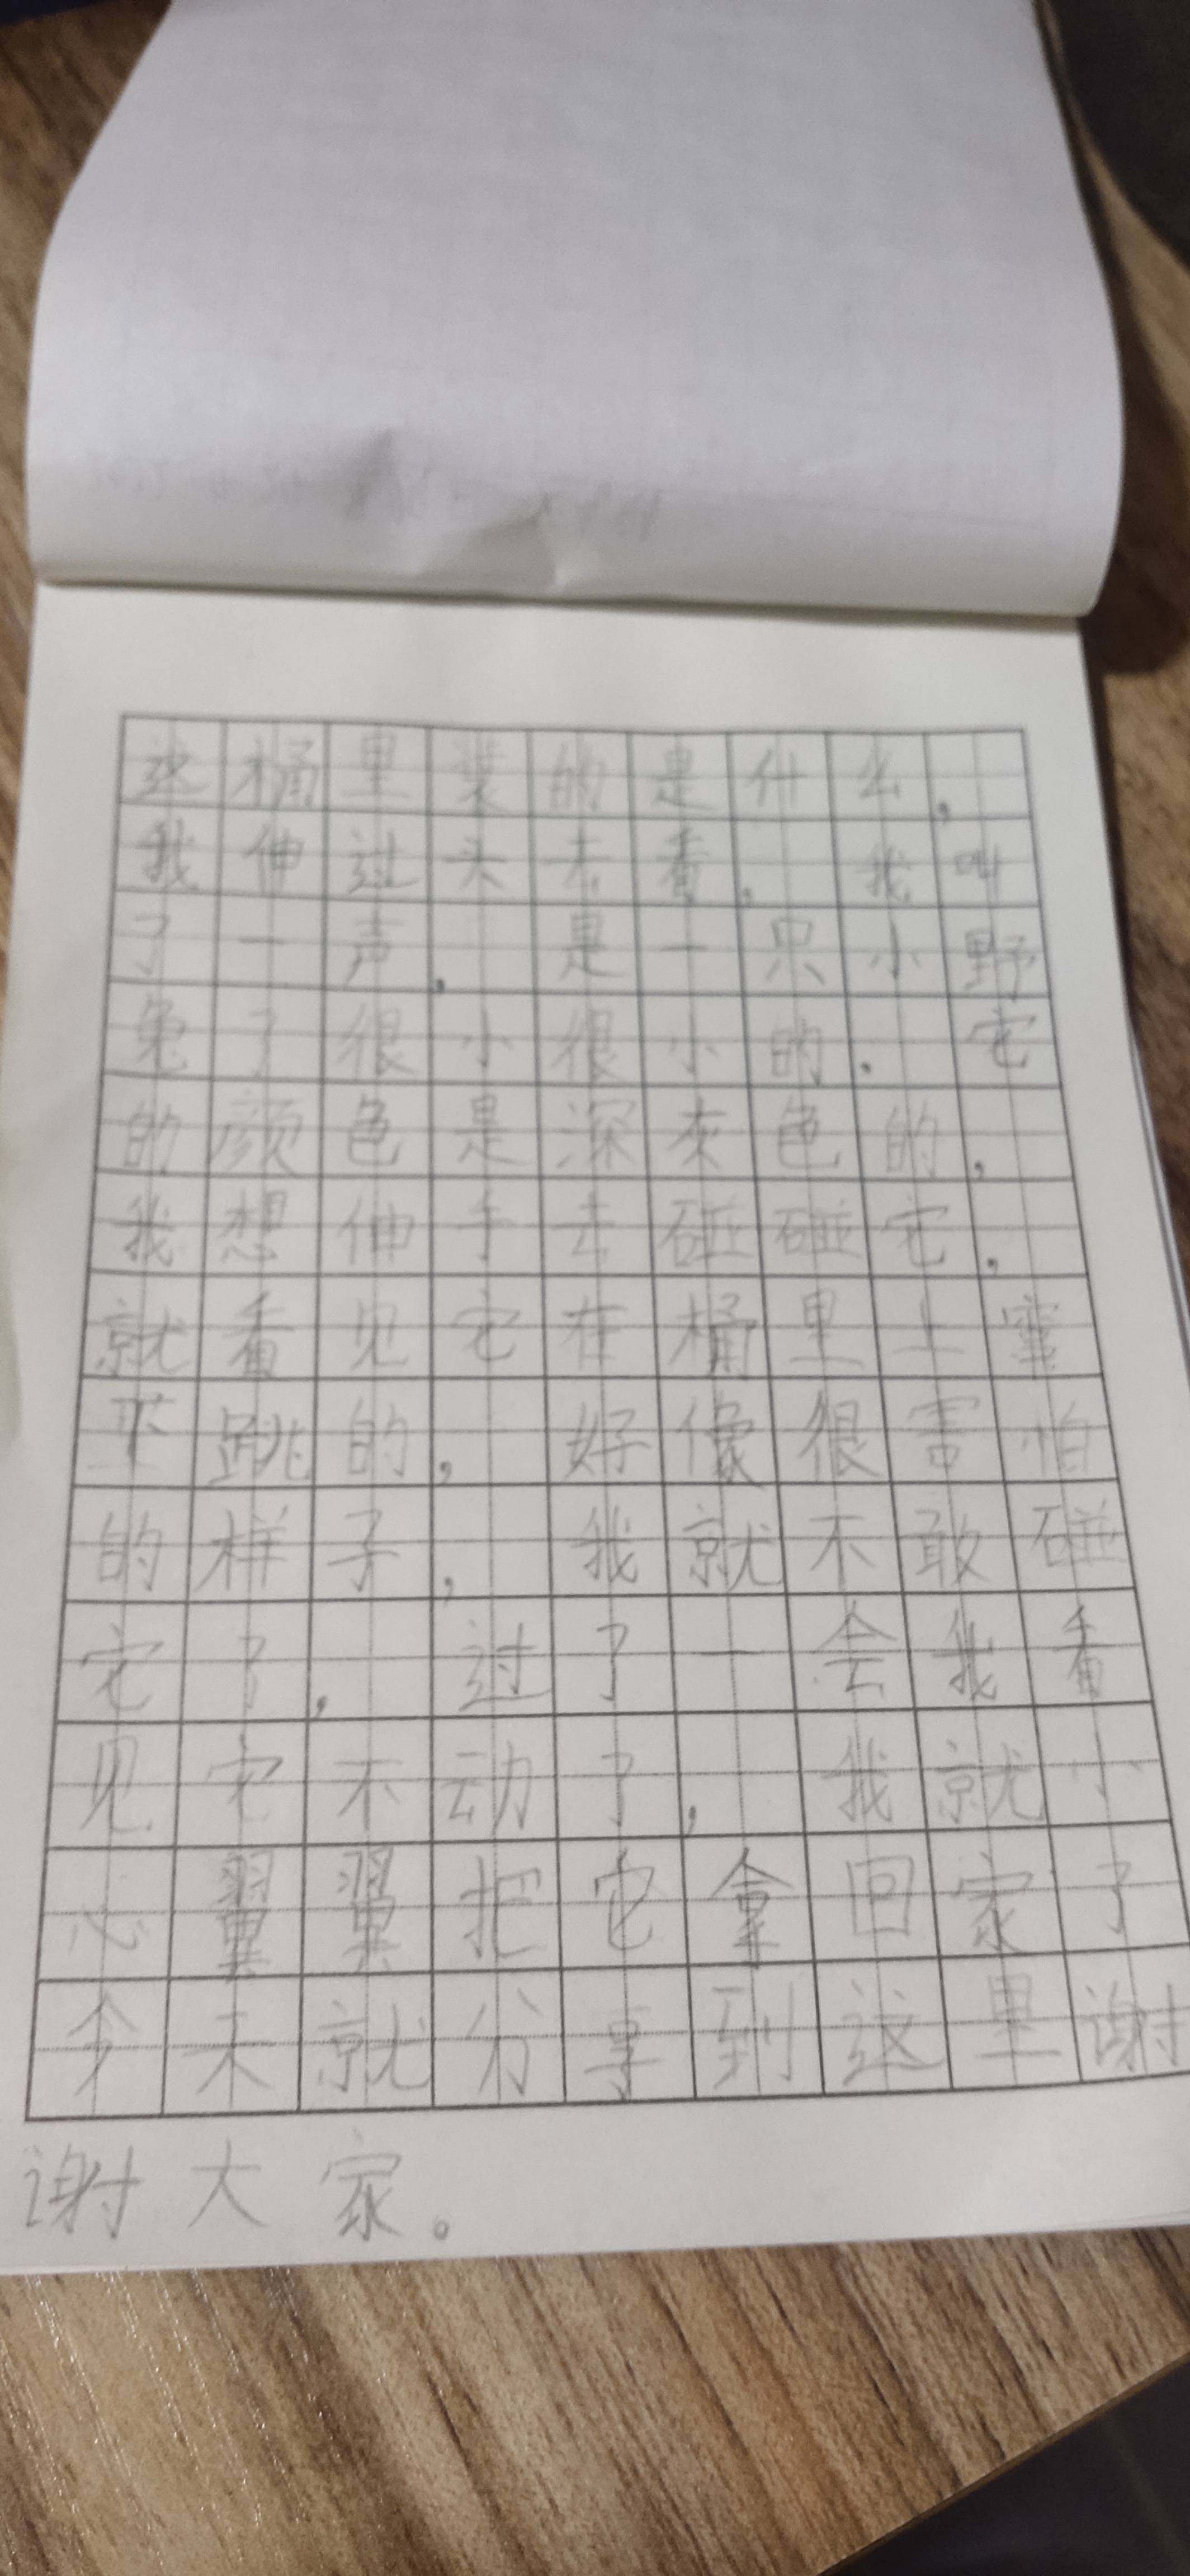 这桶里装的是什么，
我伸过头去看，我叫
了一声，是一只小野
兔了很小很小的，它
的颜色是深灰色的，
我想伸手去碰碰它，
就看见它在桶里上
下跳的，好像很害怕
的样子，我就不敢碰
它了，过了一会我看
见它不动了，我就小
心翼翼把它拿回家了
今天就分享到这里谢
谢大家。